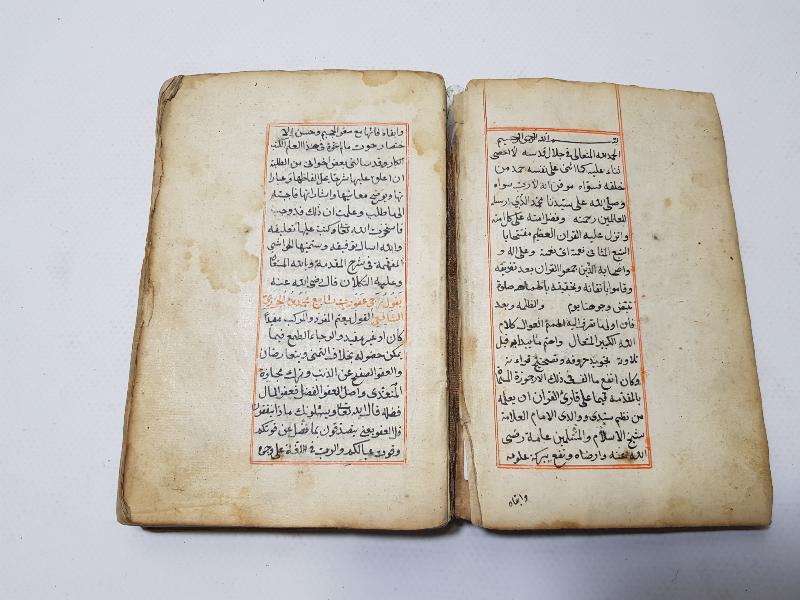 بسم الله الرحمن الرحيم
الحمد لله المتعالى فى جلال قدسه لا احصى
ثناء عليه كما اثنى على نفسه حمد من
خلقه فسواه موقن انه لا رب سواه
وصلى الله على سيدنا محمد الذي ارسله
للعالمين رحمة وفضل امته على كل امة
وانزل عليه القران العظيم مفتتحا با
السبع المثانى وعلى اله و
واصحابه الذين جمعوا القران بعد تفرقه
وقاموا باتقانه وتحقيقه
تبيض وجوهنا يوم وبعد
فان اولى ما كلام
الله الكبير المتعال واهم ما يبدا به قبل
تلاوته تجويد حروفه وتصحيح قراءته
وكان انفع ما الف فى ذلك الارجوزة المسماة
بالمقدمة فيما على قارئ القران ان يعلمه
من نظم سيدى ووالدى الامام العلامة
شيخ الاسلام والمسلمين علامة رضى
الله عنه وارضاه ونفع ببركة علومه
وابقاه
وابقاه فانها مع صغر الحجم وحسن الا
ختصار حوت ما لم تحوه فى هذا العلم الكتب
الكبار وقد سالنى بعض اخوانى من الطلبة
ان اعلق عليها شرحا يحل الفاظها وعبارا
تها ويوضح معانيها واشاراتها فاجبته
الى ما طلب وعلمت ان ذلك قد وجب
فاستخرت الله تعالى وكتبت عليها تعليقه
والله اسال توفيقه وسميتها الحواشى
المفهمة فى شرح المقدمة وبالله المستعان
وعليه التكلان قال رضى الله عنه
يقول راجى عفو رب سامع محمد بن الجزري
الشافعى القول يعم المفرد والمركب مفيدا
كان او غير مفيد والرجاء الطمع فيما
يمكن حصوله بخلاف التمنى
والعفو الصفح عن الذنب وترك مجازاة
المعتدى واصل العفو الفضل فعفو المال
فضله قال الله تعالى ويسئلونك ماذا ينفقون
قل العفو يعنى يتصدقون بما فضل عن قوتكم
وقوت عيالكم والرب فى اللغة على وجوه